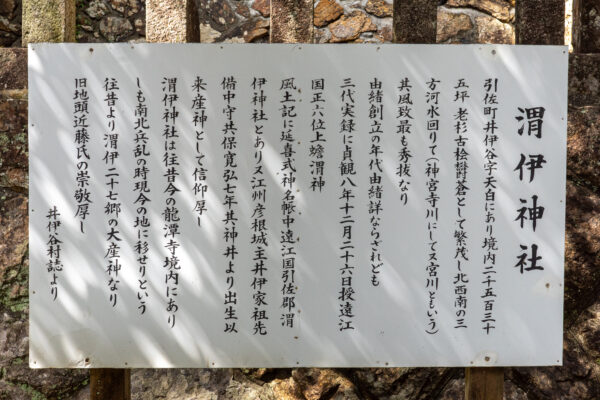 渭伊神社
引佐町井伊谷字天白にあり境内二千五百三十
五坪 老杉古桧欝蒼として繁茂し北西南の三
方河水回りて（神宮寺川にして又宮川ともいう）
其風致最も秀抜なり
由緒創立の年代由緒詳ならざれども
三代実録に貞観八年十二月二十六日授遠江
国正六位上蟾渭神
風土記に延喜式神名帳中遠江国引佐郡渭
伊神社とあり又江州彦根城主井伊家祖先
備中守共保寛弘七年其神井より出生以
来産神として信仰厚し
渭伊神社は往昔今の龍潭寺境内にあり
しも南北兵乱の時現今の地に移せりという
往昔より渭伊二十七郷の大産神なり
旧地頭近藤氏の崇敬厚し
井伊谷村誌より